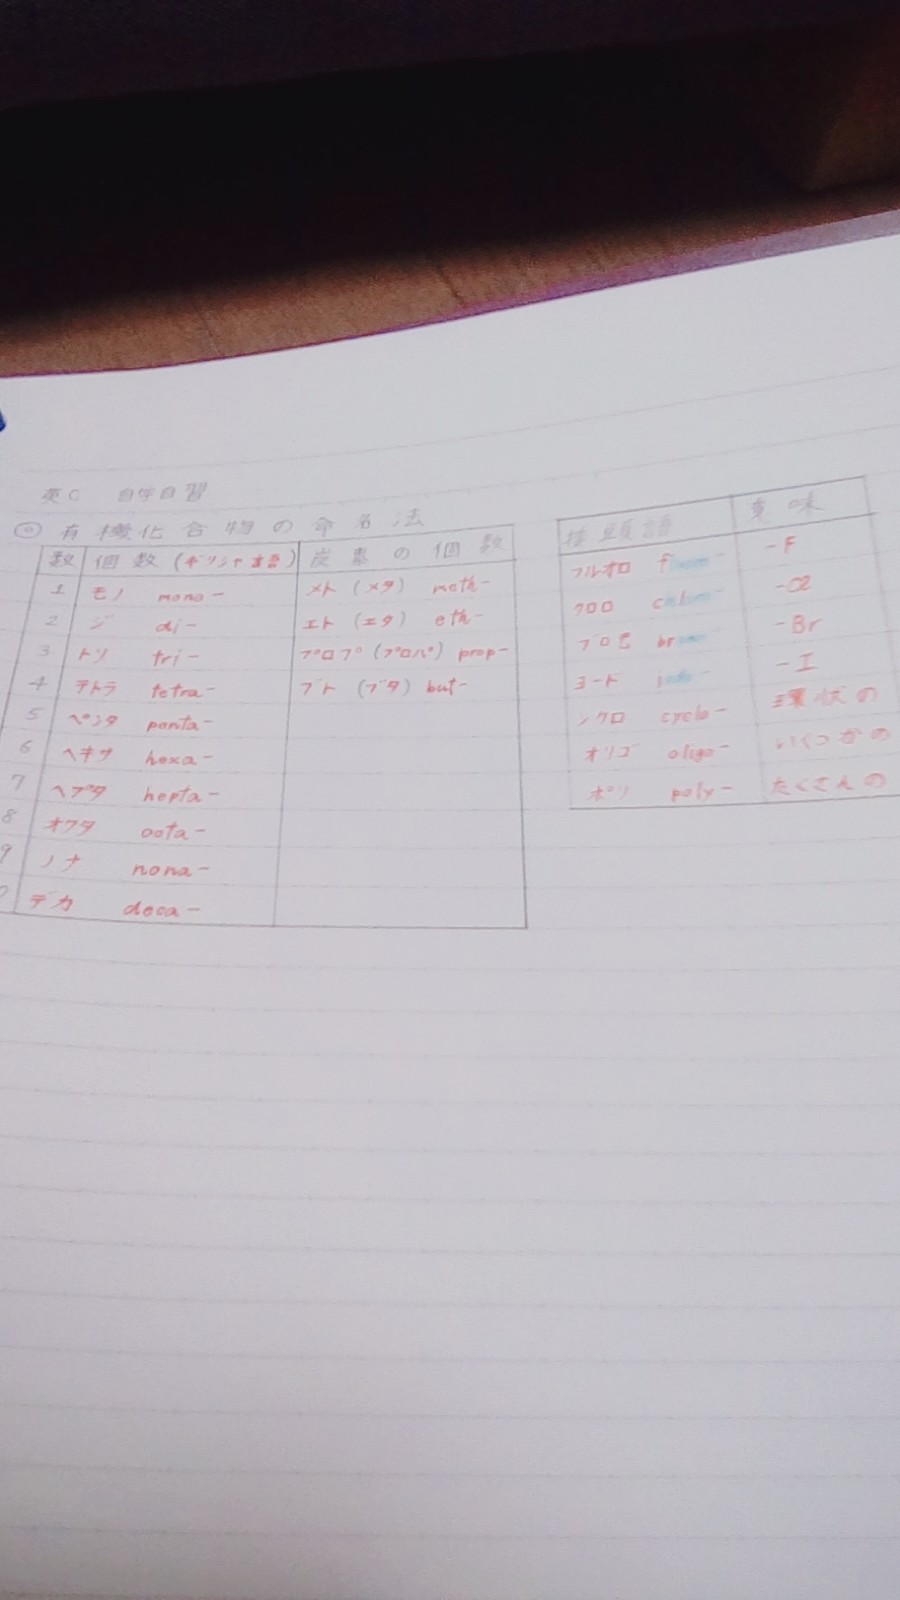 英C 自学自習
◎ 有機化合物の命名法
数 個数(ギリシャ語) 炭素の個数
1 モノ mono- メト(メタ) meth-
2 ジ di- エト(エタ) eth-
3 トリ tri- プロプ(プロパ) prop-
4 テトラ tetra- ブト(ブタ) but-
5 ペンタ penta-
6 ヘキサ hexa-
7 ヘプタ hepta-
8 オクタ octa-
9 ノナ nona-
デカ deca-
接頭語 意味
フルオロ -F
クロロ -Cl
ブロモ -Br
ヨード -I
シクロ cyclo- 環状の
オリゴ oligo- いくつかの
ポリ poly- たくさんの